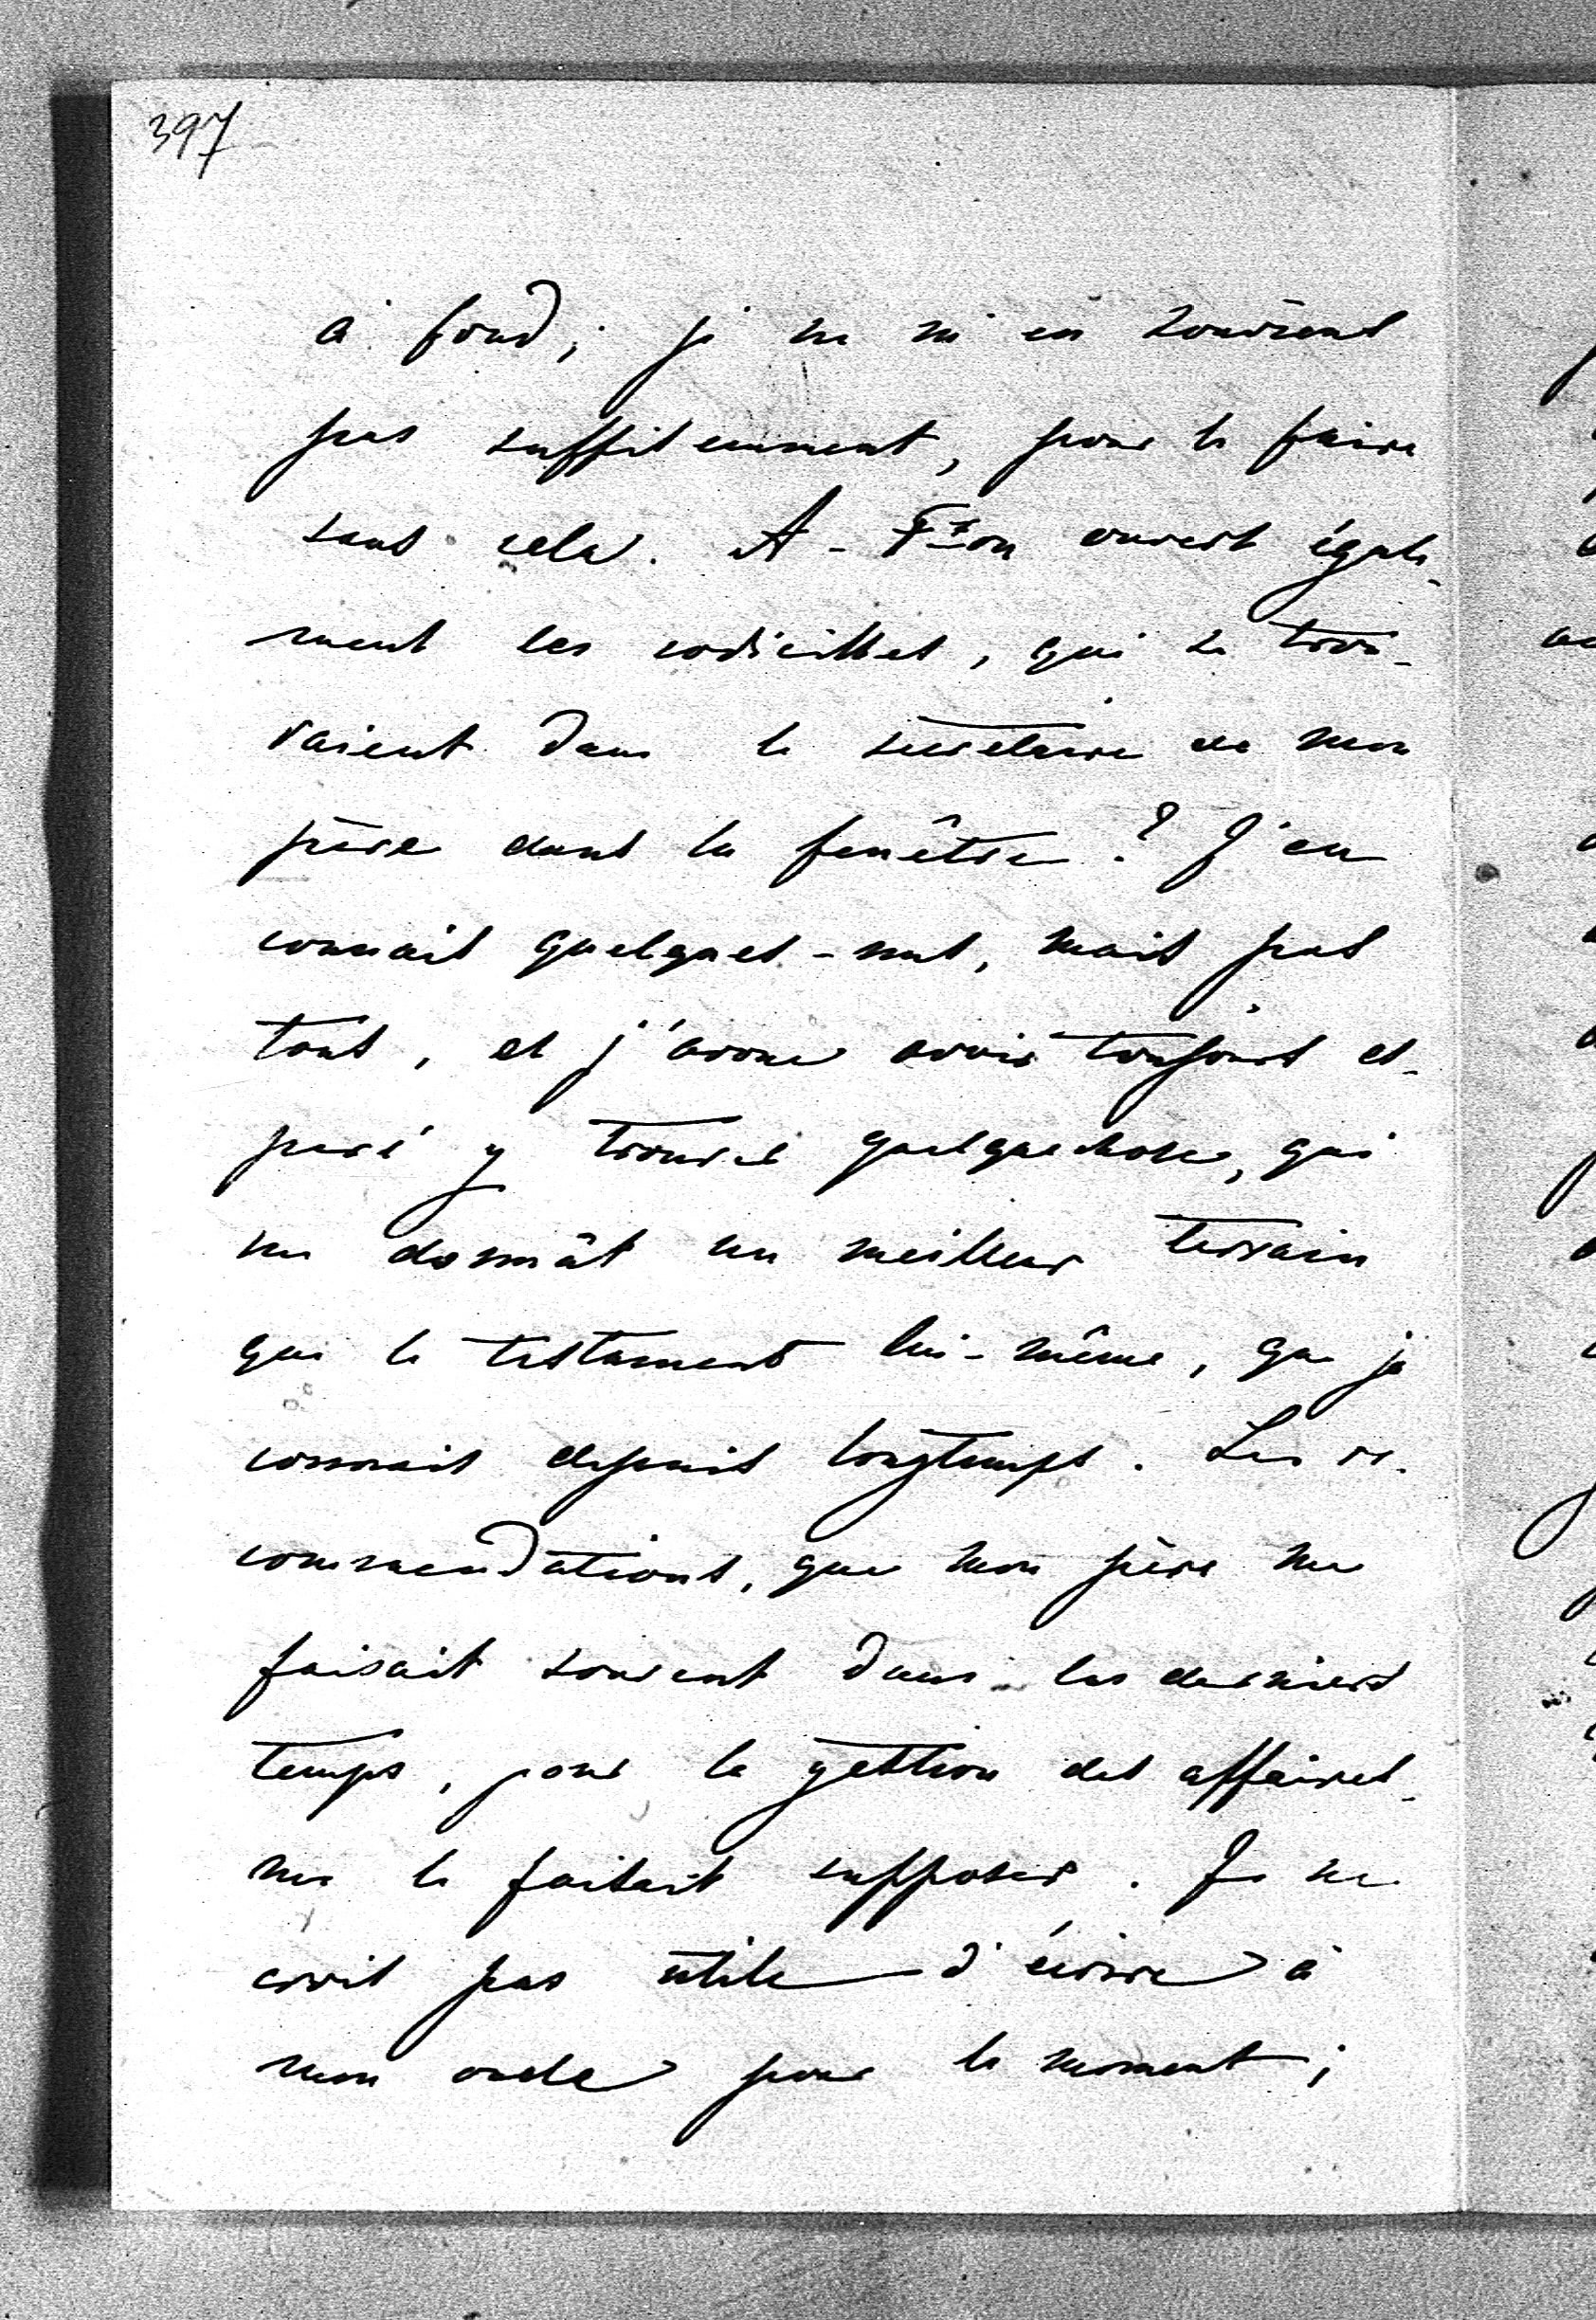 397
à fond; je ne m'en souviens
pas suffisemment, pour le faire
sans cela. A-t-on ouvert égale-
ment les codicilles, qui se trou-
vaient dans le secrétaire de mon
père dans la fenêtre? J'en
connais quelques-uns, mais pas
tous, et j'avoue avoir toujours es-
peré y trouver quelquechose, qui
me donnât un meilleur terrain
que le testament lui-même, que je
connais depuis longtemps. Les re-
commendations, que mon père me
faisait souvent dans les derniers
temps, pour la gestion des affaires
me le faisait supposer. Je ne
crois pas utile d'écrire à
mon oncle pour le moment;